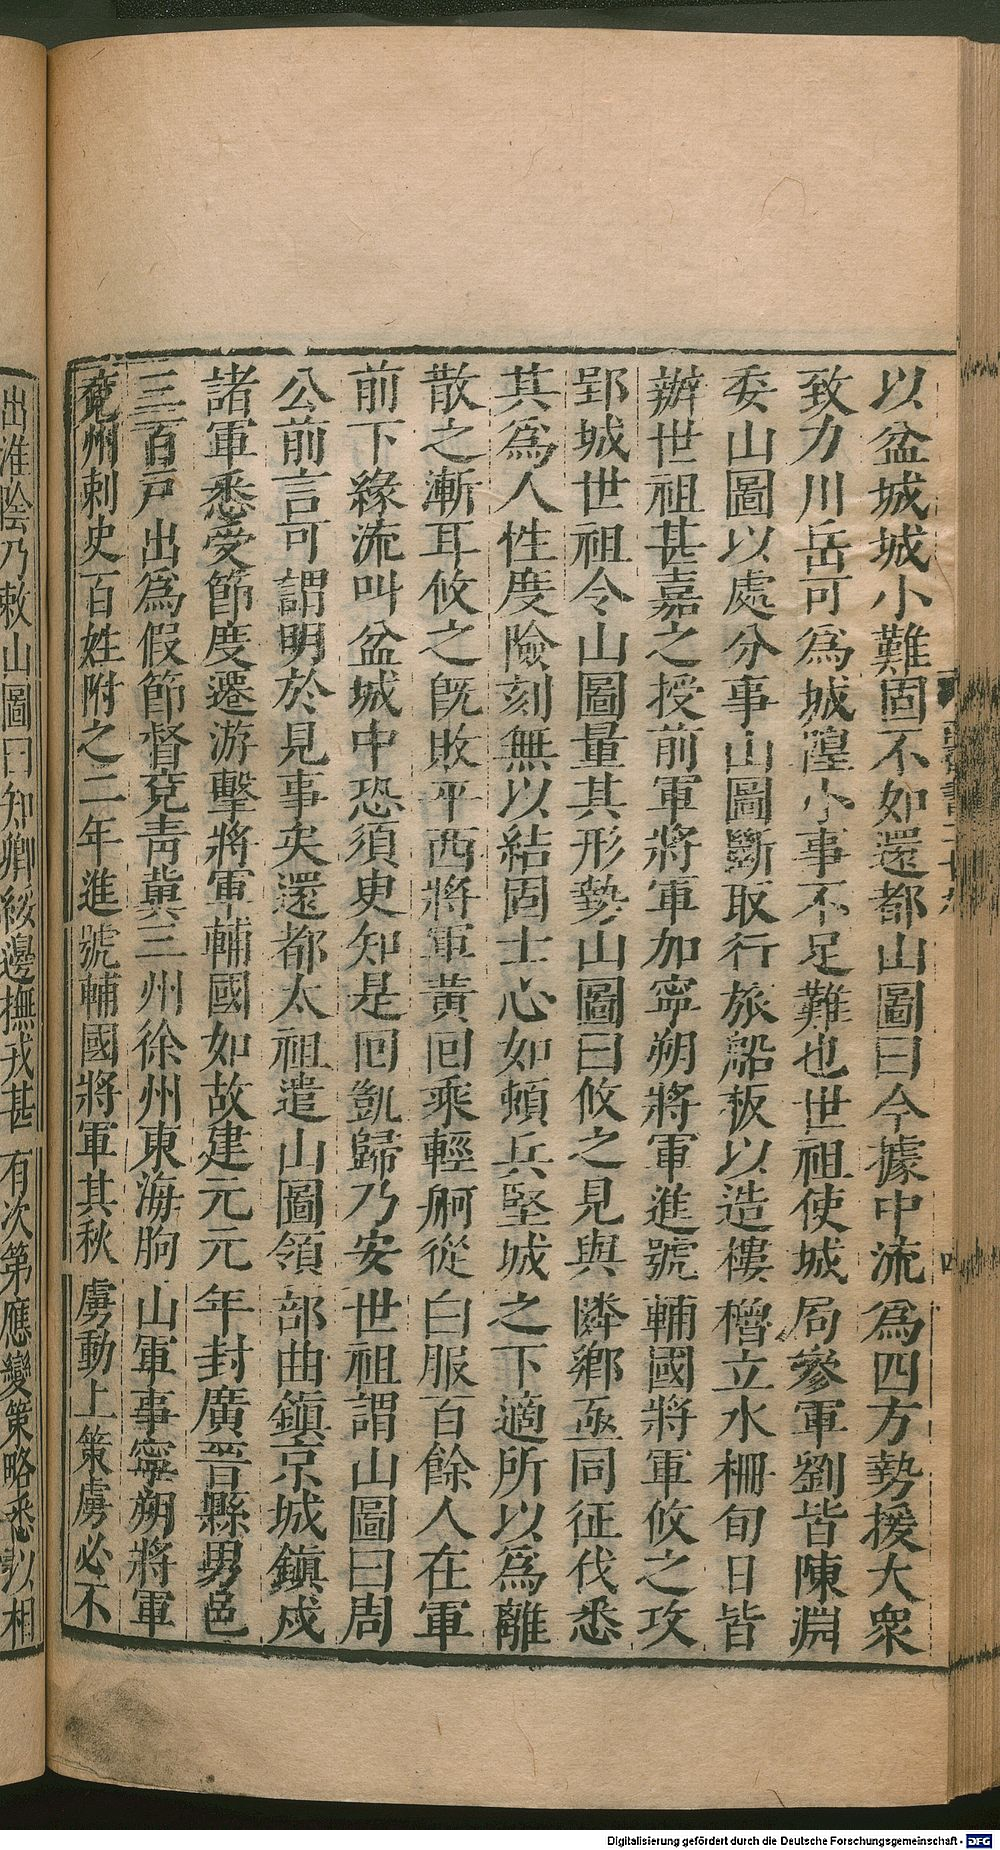 以盆城城小難固不如還都山圖曰今據中流爲四方勢援大衆
致力川岳可爲城隍小事不足難也世祖使城局參軍劉皆陳淵
委山圖以處分事山圖斷取行旅船板以造樓櫓立水柵旬日皆
辦世祖甚嘉之授前軍將軍加寧朔將軍進號輔國將軍攸之攻
郢城世祖令山圖量其形勢山圖曰攸之見與隣鄉亟同征伐悉
其爲人性度險刻無以結固士心如頓兵堅城之下適所以爲離
散之漸耳攸之旣敗平西將軍黃回乘輕舸從白服百餘人在軍
前下緣流叫盆城中恐須臾知是回凱歸乃安世祖謂山圖曰周
公前言可謂明於見事矣還都太祖遣山圖領部曲鎭京城鎭戍
諸軍悉受節度遷游擊將軍輔國如故建元元年封廣晉縣男邑
三百戶出爲假節督兗青冀三州徐州東海朐山軍事寧朔將軍
兗州刺史百姓附之二年進號輔國將軍其秋虜動上策虜必不
出淮陰乃敕山圖曰知卿綏邊撫戎甚有次第應變策略悉以相
Digitalisierung gefördert durch die Deutsche Forschungsgemeinschaft - DFG